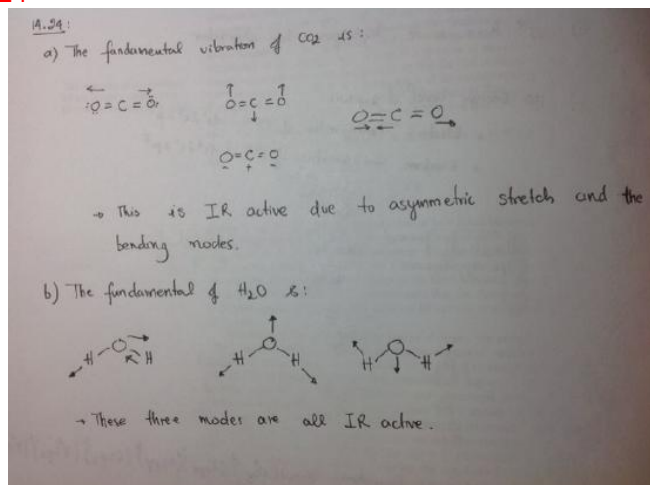 14.24:
a) The fundamental vibration of CO2 is:
:O = C = O:
O=C=O
O=C=O
O=C=O
- + -
→ This is IR active due to asymmetric stretch and the
bending modes.
b) The fundamental of H2O is:
H-O H
H-O-H
H-O-H
→ These three modes are all IR active.